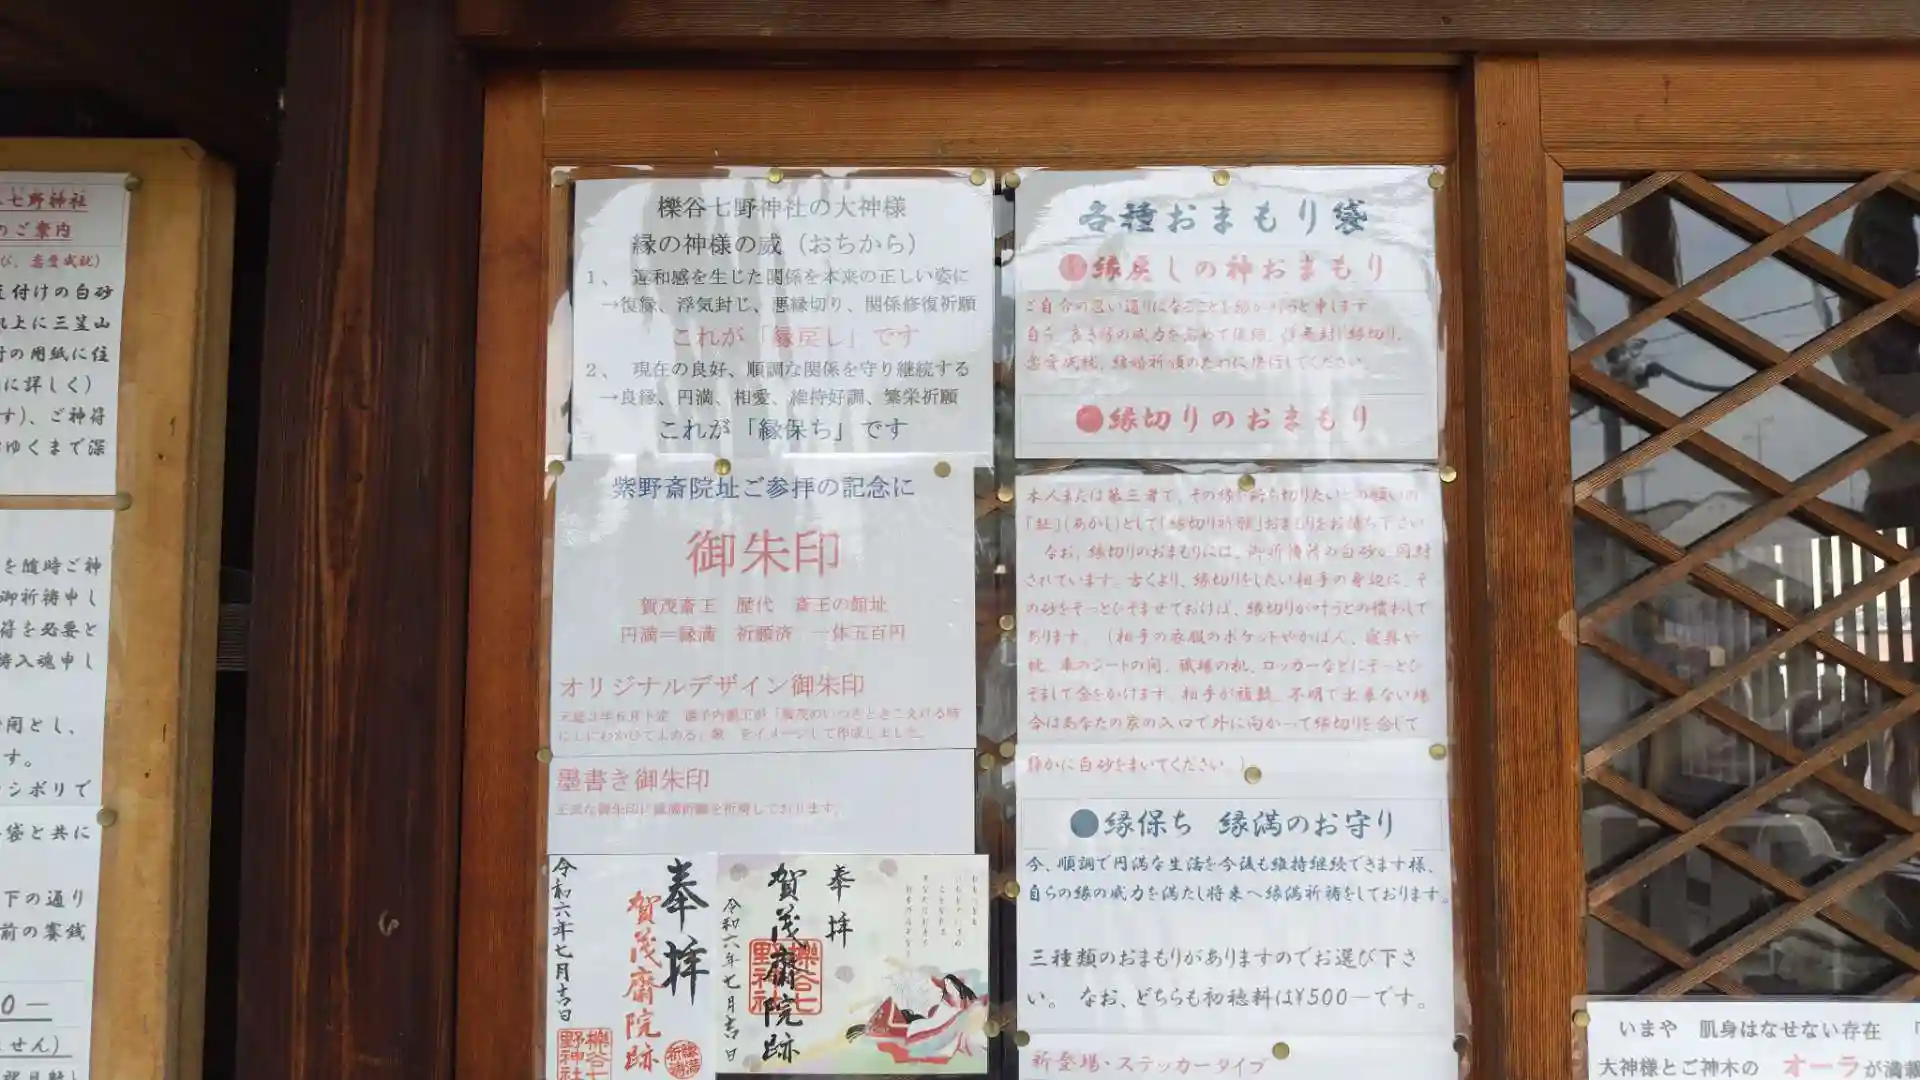 七野神社
のご案内
び、恋愛成就）
付けの白砂
上に三笠山
の用紙に住
に詳しく）
す）、ご神符
ゆくまで深
を随時ご神
御祈祷申し
符を必要と
祷入魂申し
す。
シボリで
袋と共に
下の通り
前の賽銭
0－
せん）
櫟谷七野神社の大神様
縁の神様の威（おちから）
１、 違和感を生じた関係を本来の正しい姿に
→復縁、浮気封じ、悪縁切り、関係修復祈願
これが「縁戻し」です
２、 現在の良好、順調な関係を守り継続する
→良縁、円満、相愛、維持好調、繁栄祈願
これが「縁保ち」です
紫野斎院址ご参拝の記念に
御朱印
賀茂斎王 歴代 斎王の館址
円満＝縁満 祈願済 一体五百円
オリジナルデザイン御朱印
をイメージして作成しました。
墨書き御朱印
令和六年七月吉日
奉拝
賀茂齋院跡
櫟谷七野神社
令和六年七月吉日
賀茂齋院跡
奉拝
櫟谷七野神社
各種おまもり袋
●縁戻しの神おまもり
ご自分の思い通りになることを縁が叶うと申します
恋愛成就、結婚祈願のために携行してください。
●縁切りのおまもり
本人または第三者で、その縁を断ち切りたいとの願いの
「証」（あかし）として「縁切り祈願」おまもりをお持ち下さい
なお、縁切りのおまもりには、御祈祷済の白砂が同封
されています。古くより、縁切りをしたい相手の身辺に、そ
の砂をそっとひそませておけば、縁切りが叶うとの慣わしで
あります。（相手の衣服のポケットやかばん、寝具や
枕、車のシートの間、職場の机、ロッカーなどにそっとひ
そまして念をかけます。相手が複数、不明で出来ない場
合はあなたの家の入口で外に向かって縁切りを念じて
静かに白砂をまいてください。）
●縁保ち 縁満のお守り
今、順調で円満な生活を今後も維持継続できます様、
自らの縁の威力を満たし将来へ縁満祈祷をしております。
三種類のおまもりがありますのでお選び下さ
い。 なお、どちらも初穂料は¥500－です。
新登場・ステッカータイプ
いまや 肌身はなせない存在
大神様とご神木の オーラが満載